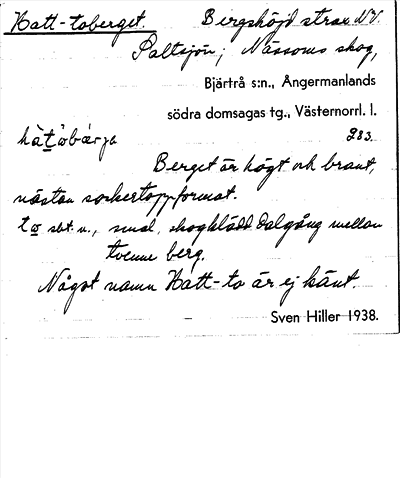 Hatt-toberget. Bergshöjd strax NV.
Paltsjön; Nässoms skog,
Bjärtrå s:n., Ångermanlands
södra domsagas tg., Västernorrl. l.
283.
Berget är högt och brant,
nästan sockertoppformat.
to sbt. n., smal, skogklädd dalgång mellan
tvenne berg.
Något namn Hatt-to är ej känt.
Sven Hiller 1938.